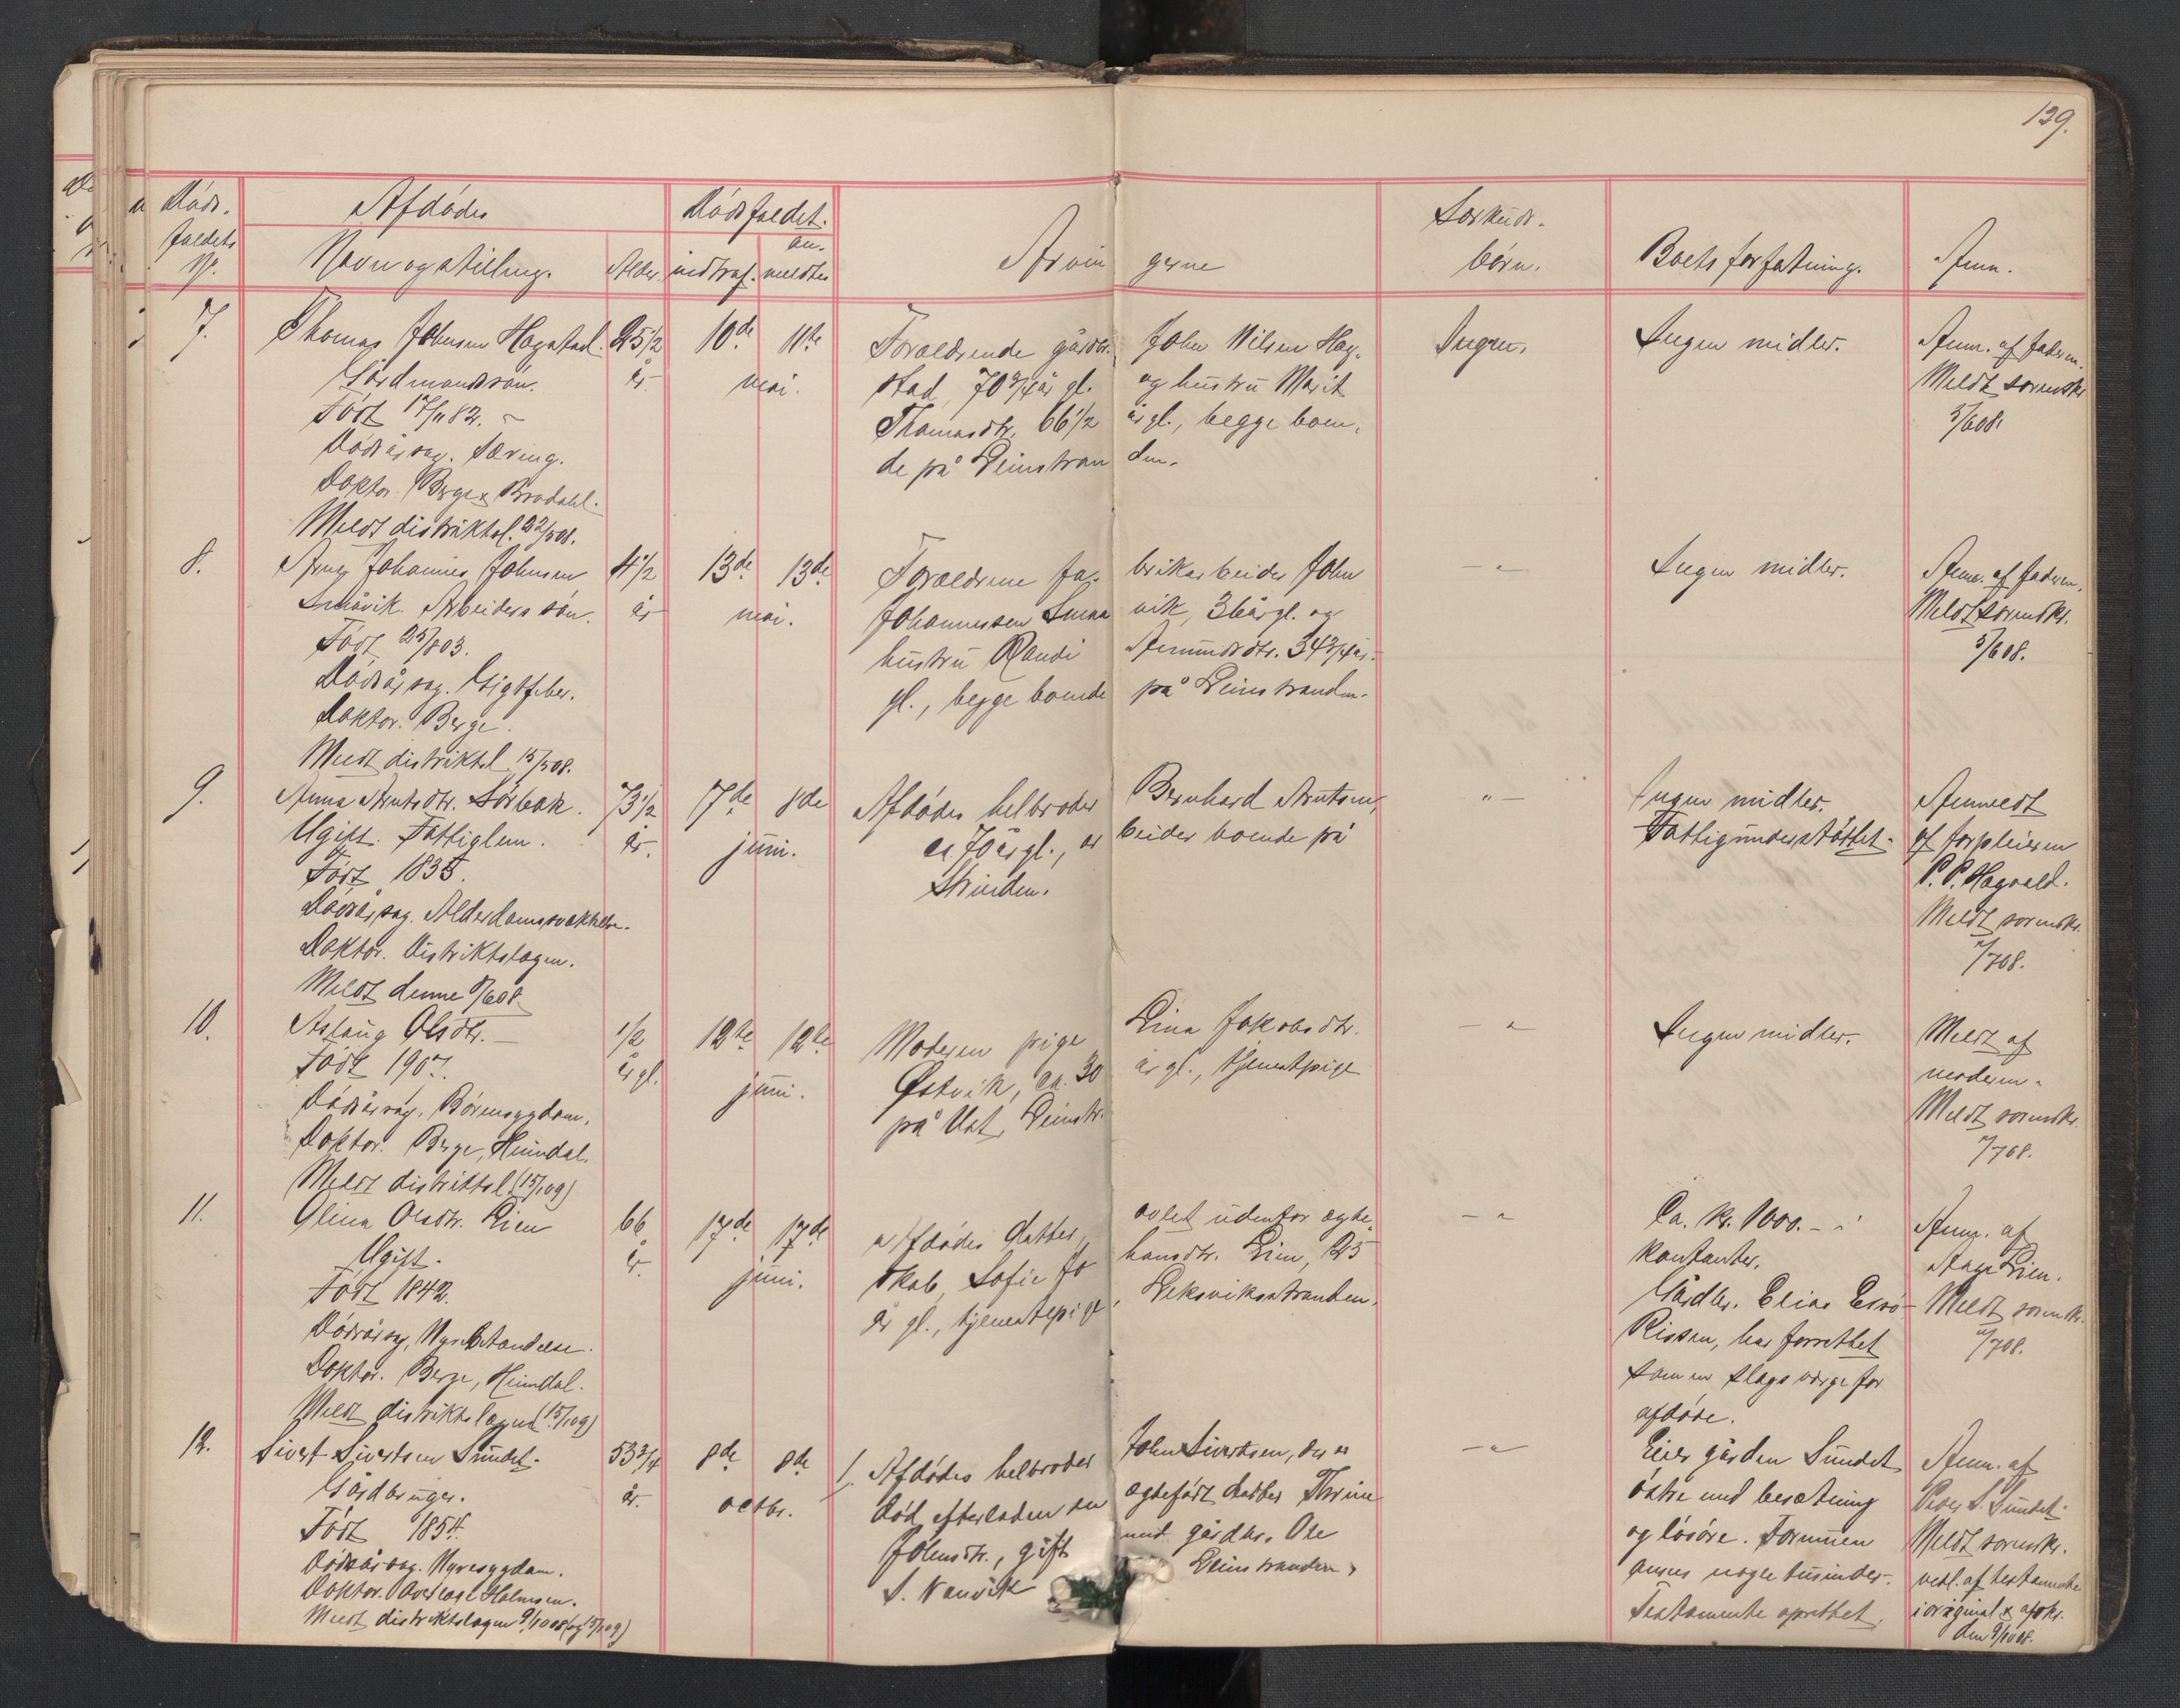 139.
Døds-
faldets
No.
Afdødes
Navn og stilling.
Alder.
Dødsfaldet.
indtraf.
an-
meldtes
Arvingerne
Særkuds-
børn.
Boets forfatning.
Anm.
7.
Thomas Johnsen Hagstad.
Gårdmandssøn.
Født 17/11 82.
Dødsårsag. Tæring.
Doktor. Berge & Brodahl.
Meldt distriktsl. 22/5 08.
25 1/2
år
10de 11te
mai.
Forældrende gårdbr. John Nilsen Hag-
stad, 70 3/4 år gl. og hustru Marit
Thomasdtr. 66 1/2 år gl., begge boen-
de på Leinstranden.
Ingen.
Ingen midler.
Anm. af faderen.
Meldt sorenskr.
5/6 08.
8.
Arne Johannes Johnsen
Småvik. Arbeiders søn.
Født 25/8 03.
Dødsårsag. Gigtfeber.
Doktor. Berge.
Meldt distriktsl. 15/5 08.
4 1/2
år
13de 13de
mai.
Forældrene fabrikarbeider John
Johannessen Småvik, 36 år gl. og
hustru Randi Amundsdtr. 34 3/4 år
gl., begge boende på Leinstranden.
— " —
Ingen midler.
Anm. af faderen.
Meldt sorenskr.
5/6 08.
9.
Anna Arntsdtr. Sørbak.
Ugift. Fattiglem.
Født 1835.
Dødsårsag. Alderdomssvakhet.
Doktor. Distriktslægen.
Meldt denne 8/6 08.
73 1/2
år.
7de 8de
juni.
Afdødes helbroder Bernhard Arntsen,
ca. 70 år gl., arbeider boende på
Strinden.
" —
Ingen midler.
Fattigunderstøttet.
Anmeldt
af forpleieren
P. P. Hagvald.
Meldt sorenskr.
/7 08.
10.
Aslaug Olsdtr. —
Født 1907.
Dødsårsag. Børnesygdom.
Doktor. Berge, Heimdal.
Meldt distriktsl. (15/1 09)
1/2
år gl.
12te 12te
juni.
Moderen pige Lina Jakobsdtr.
Østvik, ca. 30 år gl., tjenestpige
på Ust, Leinstr.
— " —
Ingen midler.
Meldt af
moderen.
Meldt sorenskr.
/7 08.
11.
Olina Olsdtr. Lien
Ugift.
Født 1842.
Dødsårsag. Nyrebetændelse.
Doktor. Berge, Heimdal.
Meldt distriktslægen (15/1 09)
66
år.
17de 17de
juni.
Afdødes datter, avlet udenfor ægte-
skab, Sofie Johansdtr. Lien, 25
år gl., tjenestepige, Leksvikstranden.
— " —
Ca. kr. 1000. — i
kontanter.
Gårdbr. Elias
Rissen, har forrettet
som en slags værge for
afdøde.
Anm. af
Lien.
Meldt sorenskr.
/7 08.
12.
Sivert Sivertsen Sundet.
Gårdbruger.
Født 1854.
Dødsårsag. Nyresygdom.
Doktor. Holmsen.
Meldt distriktslægen 9/10 08 (og 15/1 09)
53 3/4
år.
8de 8de
octbr.
1, Afdødes helbroder John Sivertsen, der er
død, efterladende en ægtefødt datter Thrine
Johnsdtr., gift med gårdbr. Ole
S. Nanvik Leinstranden,
— " —
Eier gården Sundet
østre med besætning
og løsøre. Formuen
ansees nogle tusinder.
Testamente oprettet.
Anm. af
Peder S. Sundet.
Meldt sorenskr.
vedl. af testamente
i original & afskr.
den 9/10 08.